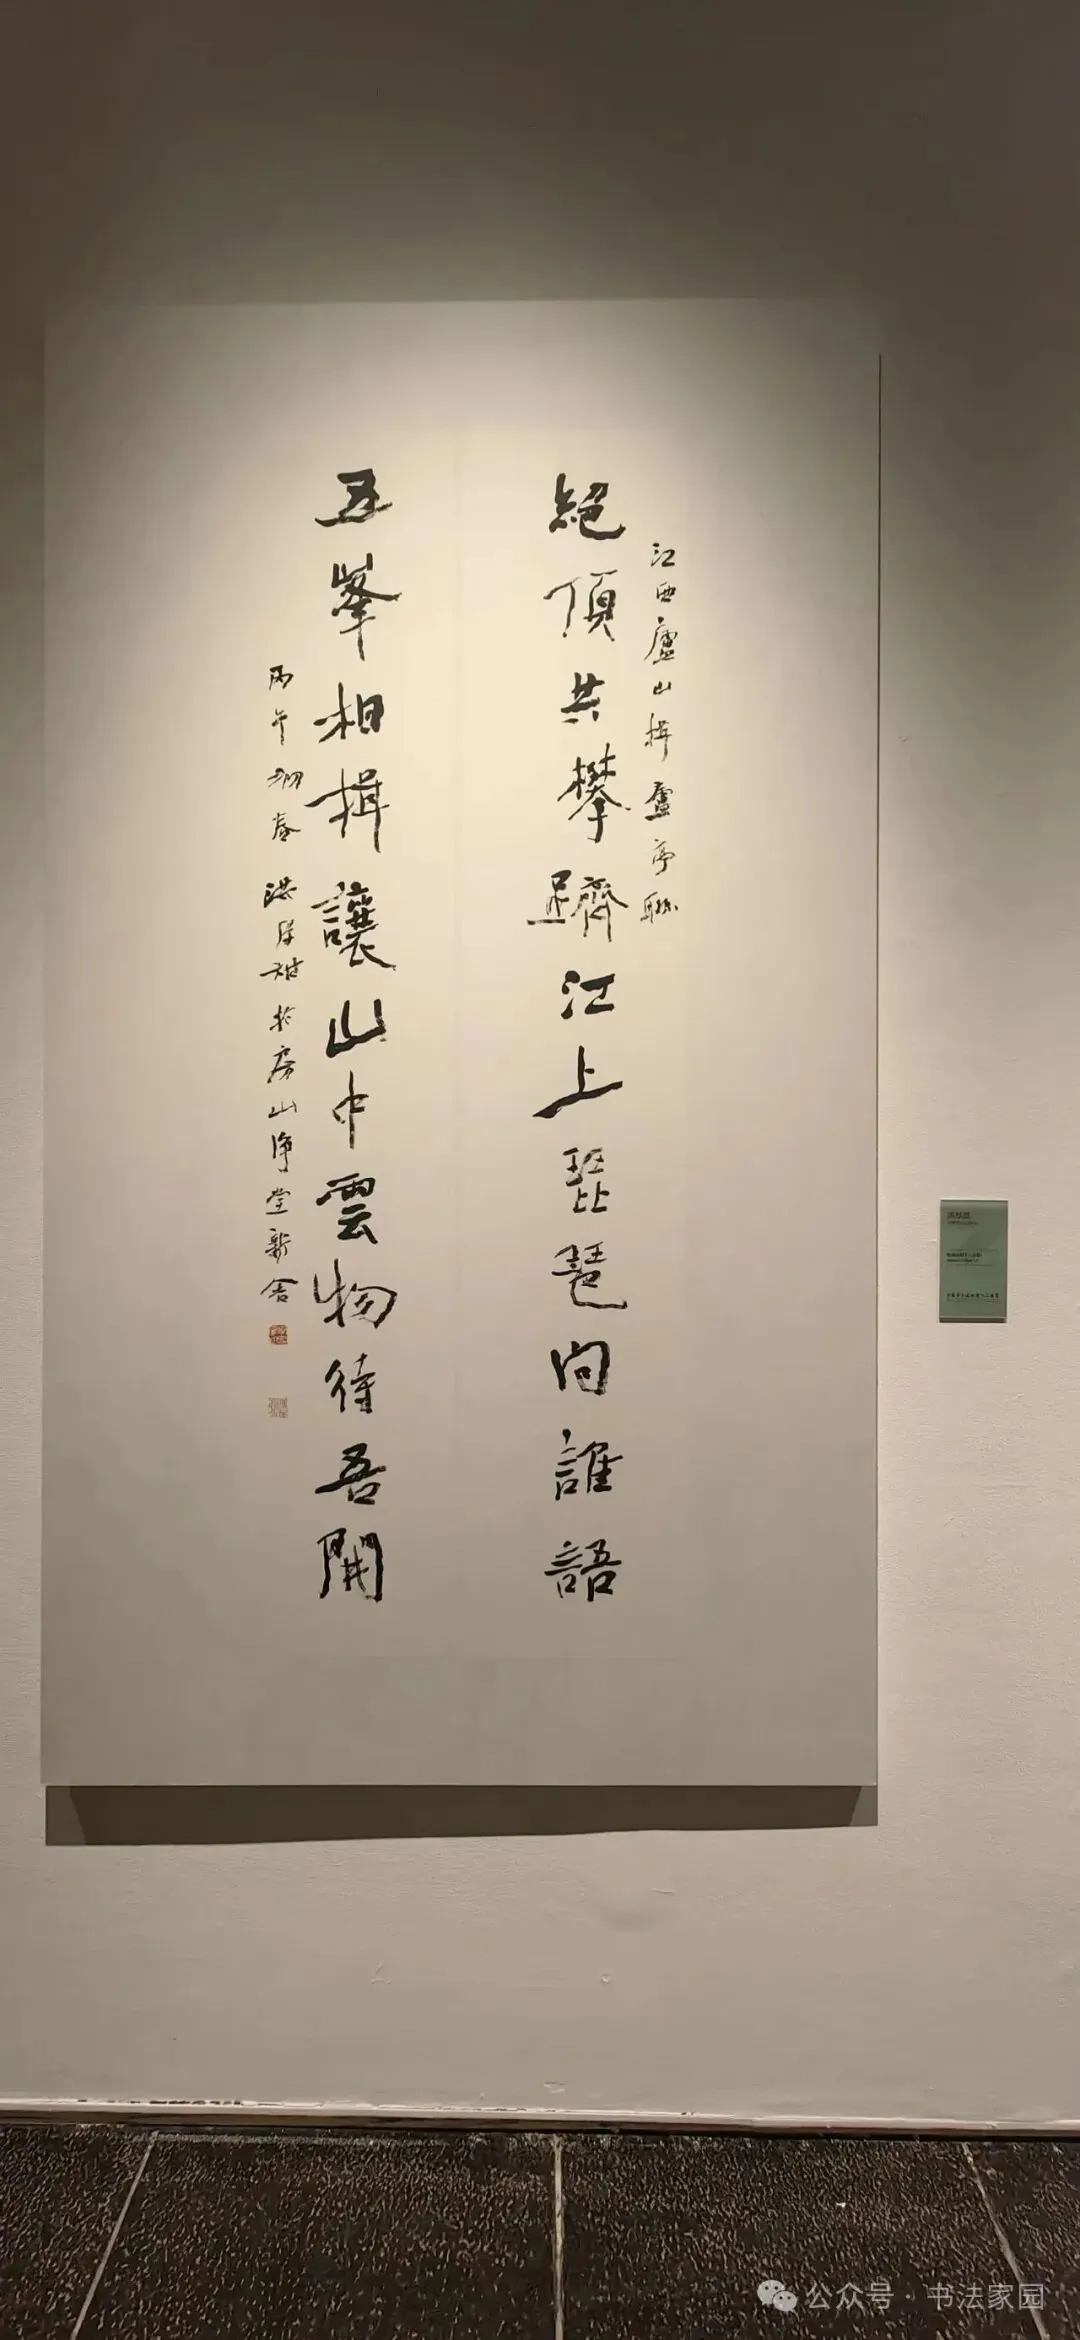 江西廬山揖廬亭聯
絕頂共攀躋江上琵琶向誰語
五峯相揖讓山中雲物待吾開
丙午初春洪厚甜於房山淨堂新舍
洪厚甜
公众号·书法家园